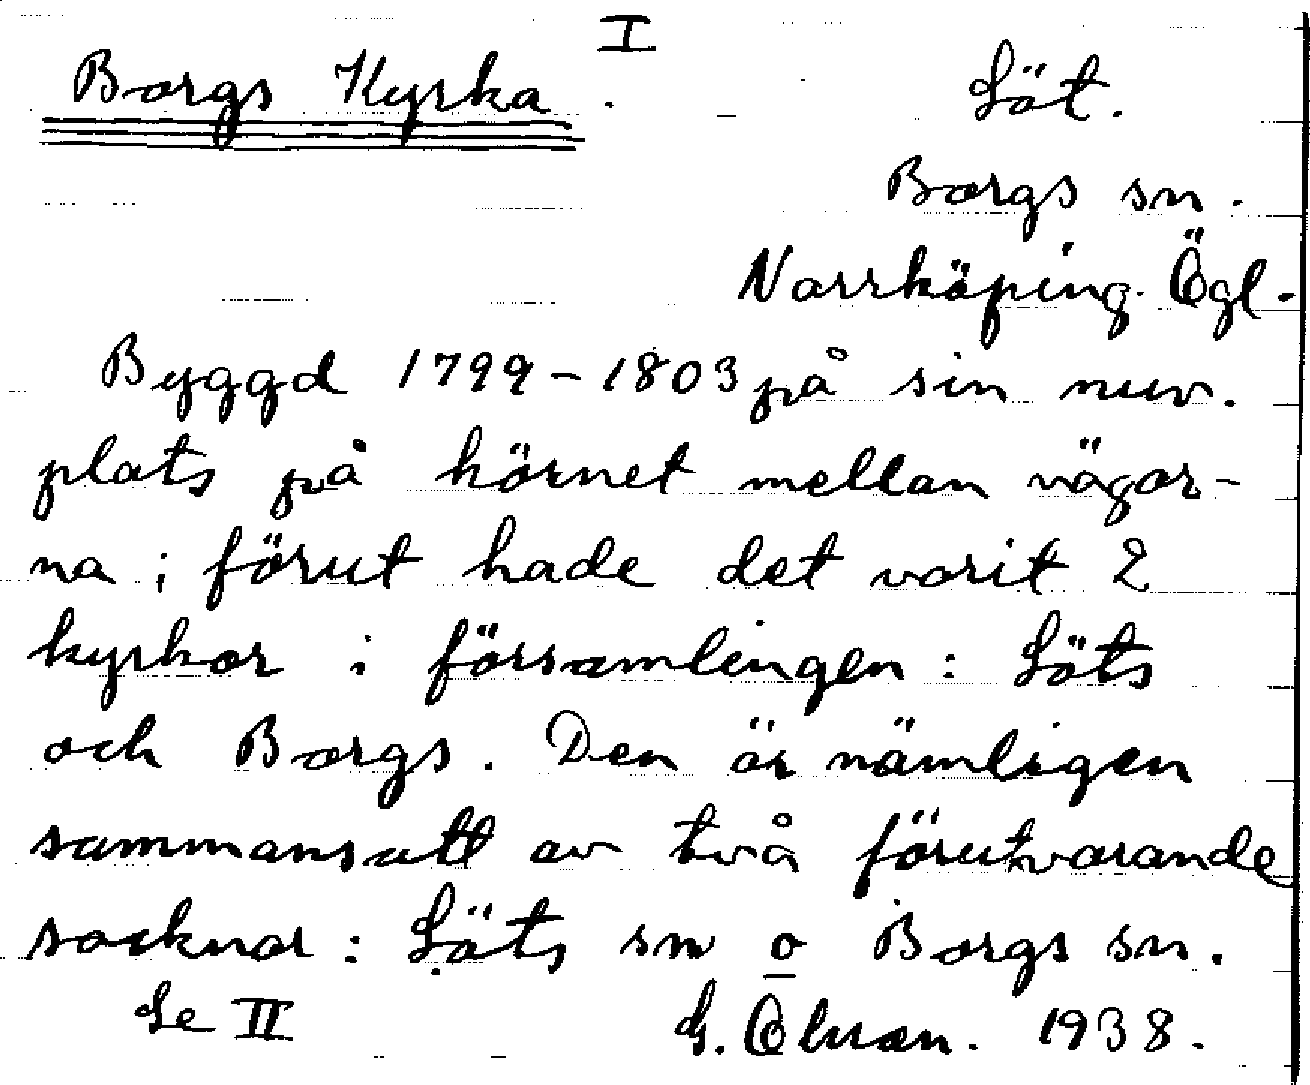 I
Borgs Kyrka. Löt.
Borgs sn.
Norrköping. Ögl.
Byggd 1799-1803 på sin nuv.
plats på hörnet mellan vägar-
na; förut hade det varit 2
kyrkor i församlingen: Löts
och Borgs. Den är nämligen
sammansatt av två förutvarande
socknar: Löts sn o Borgs sn.
Se II G. 1938.